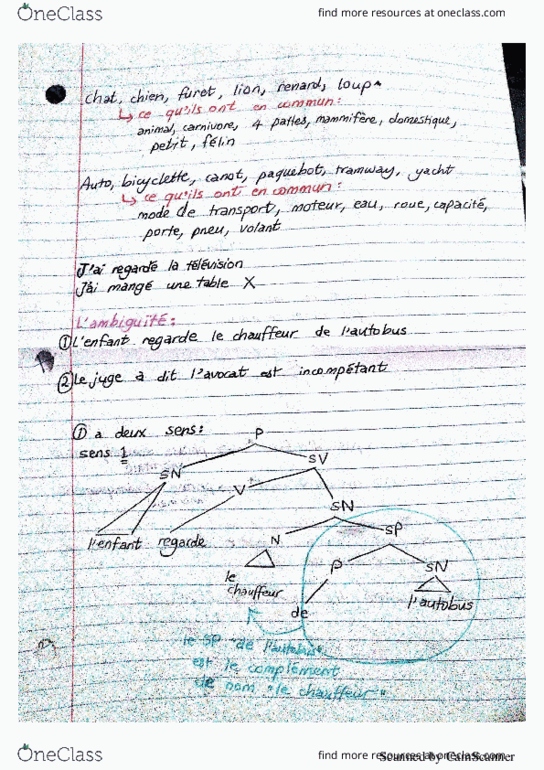 OneClass find more resources at oneclass.com
chat, chien, furet, lion, renard, loup
↳ ce qu'ils ont en commun:
animal, carnivore, 4 pattes, mammifère, domestique,
petit, félin
Auto, bicyclette, canot, paquebot, tramway, yacht
↳ ce qu'ils ont en commun:
mode de transport, moteur, eau, roue, capacité,
porte, pneu, volant
J'ai regardé la télévision
J'ai mangé une table X
L'ambiguïté:
① L'enfant regarde le chauffeur de l'autobus
② Le juge a dit l'avocat est incompétant
① a deux sens:
sens 1
P
SN SV
V SN
N SP
l'enfant regarde
P SN
le
chauffeur
l'autobus
de
le SP "de l'autobus"
est le complément
de nom "le chauffeur"
OneClass find more resources at oneclass.com
Scanned by CamScanner